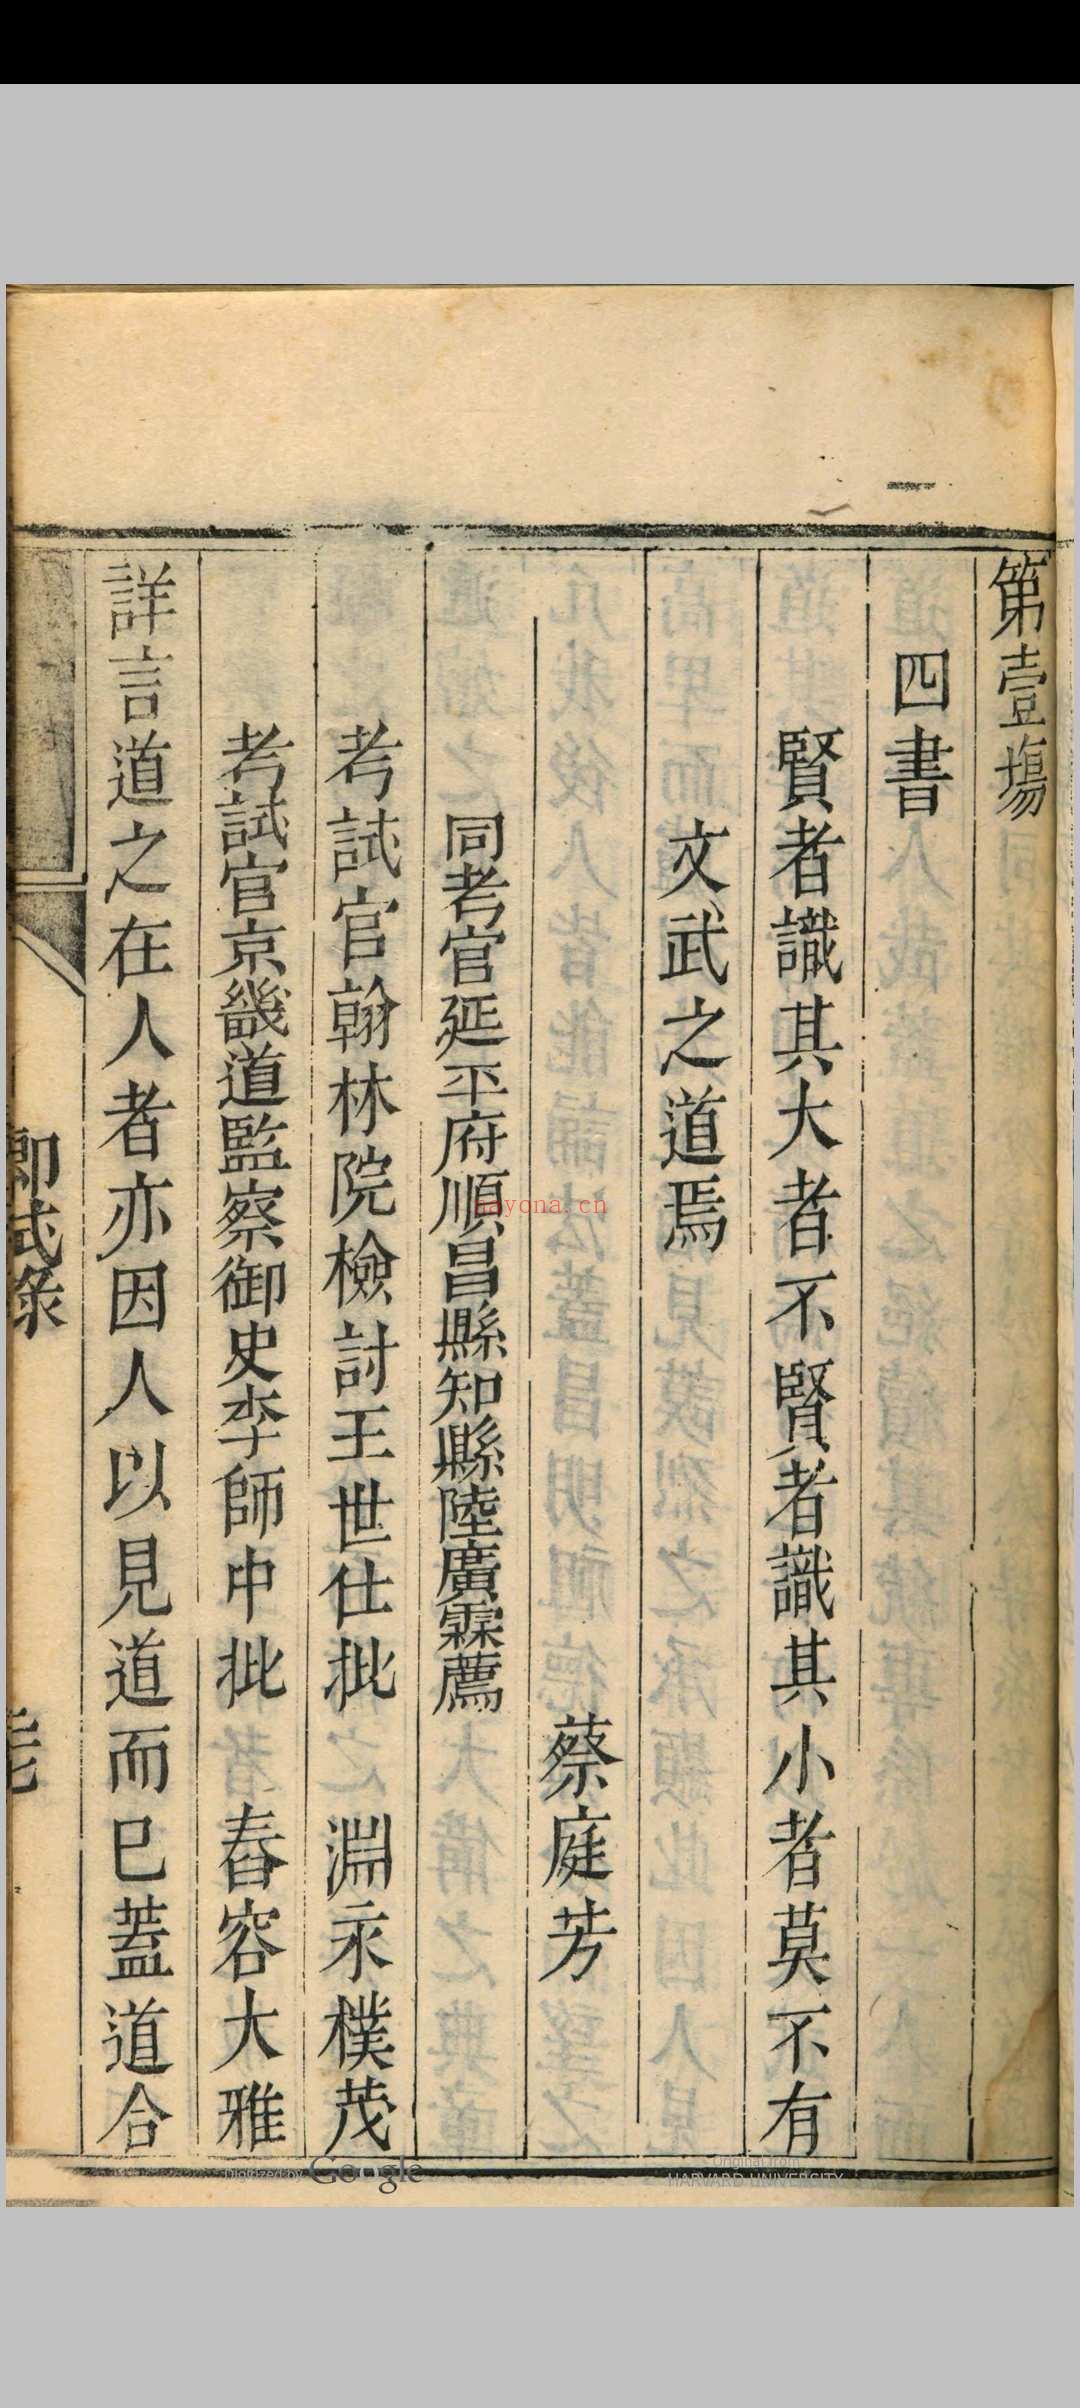 第壹場
四書
賢者識其大者不賢者識其小者莫不有
文武之道焉
蔡庭芳
同考官延平府順昌縣知縣陸廣霖薦
考試官翰林院檢討王世仕批 淵永樸茂
考試官京畿道監察御史李師中批 舂容大雅
詳言道之在人者亦因人以見道而已蓋道合
鄉試錄
nayona.cn
Digitized by Google
Original from
HARVARD UNIVERSITY